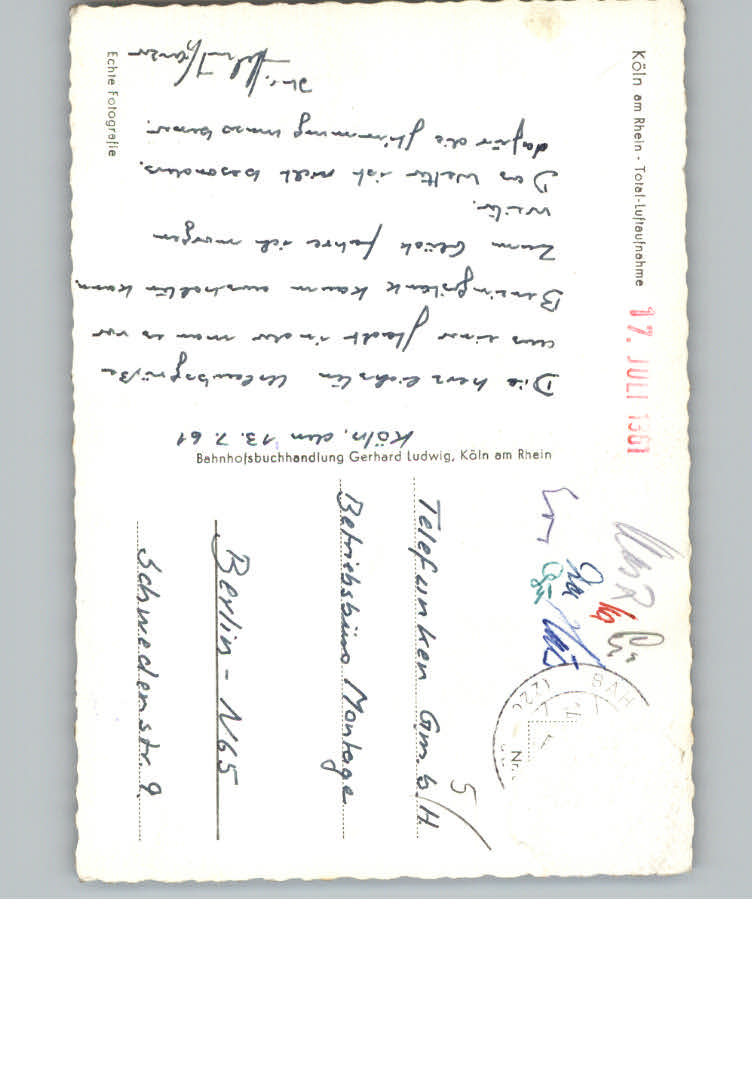 Köln am Rhein - Total-Luftaufnahme
17. JULI 1961
Köln, den 13.7.61
Die herzlichsten Urlaubsgrüße
aus einer Stadt in der man es vor
Benzingestank kaum aushalten kann
Zum Glück fahre ich morgen
weiter.
Das Wetter ist nicht besonders,
dafür die Stimmung umso besser.
Echte Fotografie
Bahnhofsbuchhandlung Gerhard Ludwig, Köln am Rhein
BAH
Nr.
5
Telefunken G.m.b.H.
Betriebsbüro Montage
Berlin - N65
Schwedenstr. 9.